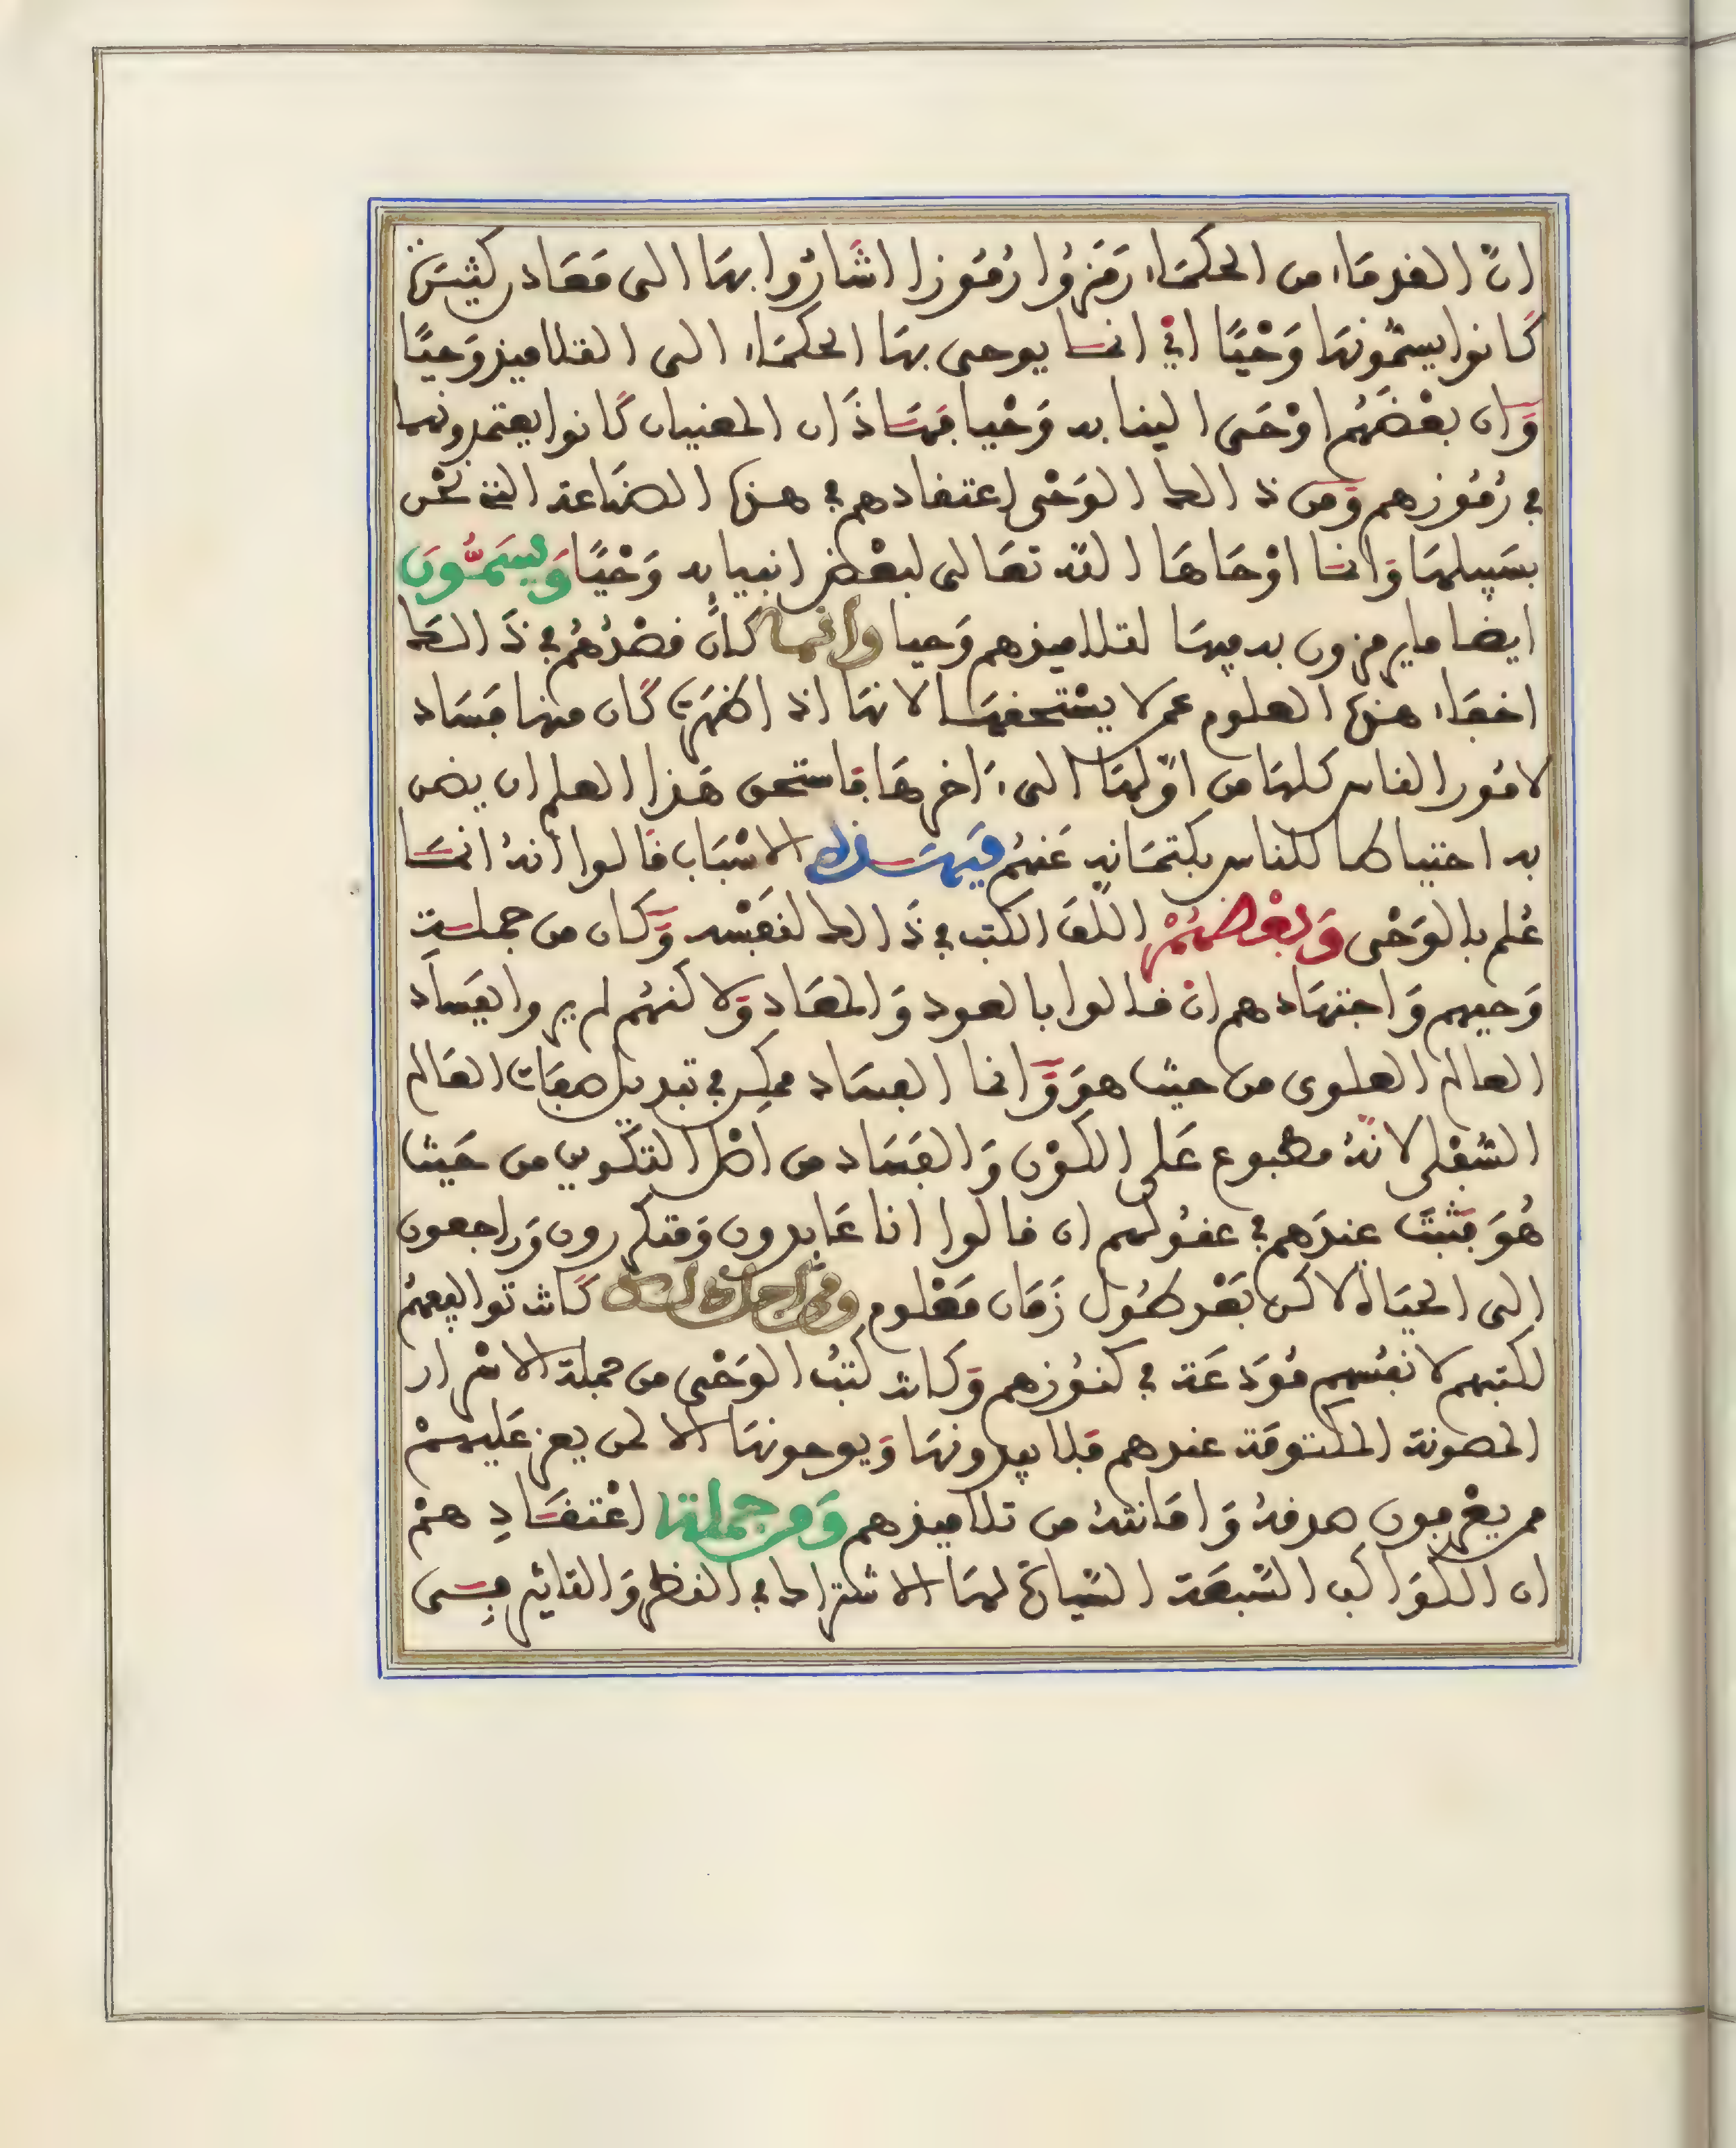 انّ القدمَاء من الحكمَاء رَمَزوُا رُمُوزا اشَارُوا بهَا الى مَعَاد كثيرَة
كَانوا يسمّونهَا وَحْيًا اي انمَا يوحى بهَا الحكمَاء الى التلاميذ وَحيًا
وَان بعْضَهُم اوْحَى الينا به وَحْيا فهَاذَان المعنيان كَانوا يعتمدونهما
في رُمُوزهم وَمن ذالك الوَحْى اعتقادهم في هذه الصَاعة التي نحْن
بسَبيلهَا وَانمَا اوْحَاهَا الله تعَالى لبعْض انبيايه وَحْيًا وَيسَمُّونَ
ايضا ما يرمزون به ميهَا لتلاميذهم وَحيا وانما كَان قصْدُهُم في ذَالكَ
اخفَاء هذه العلوم عمن لا يسْتحقهَا لانهَا اذا اظهرَت كَان منها فسَاد
لامُور الناس كلهَا من اوّلهَا الى ءَاخرهَا فاستحق هَذا العلم ان يضن
به احتياطا للناس بكتمَانه عَنهُم فبهَذه الاسْبَاب قَالوا أنهُ انمَا
عُلم بالوَحْى وَبعْضهُمْ اللّف الكتب في ذَالك لنفسْه وَكَان من جملَة
وَحيهم وَاجتهَادهم ان قالوا بالعود وَالمعَاد وَلاكنهُم لم يروا بفسَاد
العالم العلوى من حيث هوَ وَانما الفسَاد ممكِن في تبديل صفَات العَالم
السُفْلى لانّهُ مطبوع عَلى الكوْن وَالفسَاد من اصْل التكوين من حَيث
هُوَ فثبتَ عندَهم في عقولهم ان قالوا انا عَايدون وَمتكررون وَراجعون
الى الحيَاة لاكن بَعْد طُول زَمَان مَعْلوم ومن اجل ذالك كَانت تواليفهُم
لكتبهم لانفسهم مُودَعَة في كنُوزهم وَكانت كتبُ الوَحْى من جملة الاسْرار
المصونة المكتومَة عندهم فلا يبدونهَا وَيوحونهَا الا لمن يعز عَليهمْ
ممن يعْرفون صدقهُ وَامَانتهُ من تلاميذهم وَمن جملة اعْتقَادِ همْ
ان الكوَاكب السّبعَة السّيارَة لهَا الاشتراك في النظر وَالتاثير فِسَى